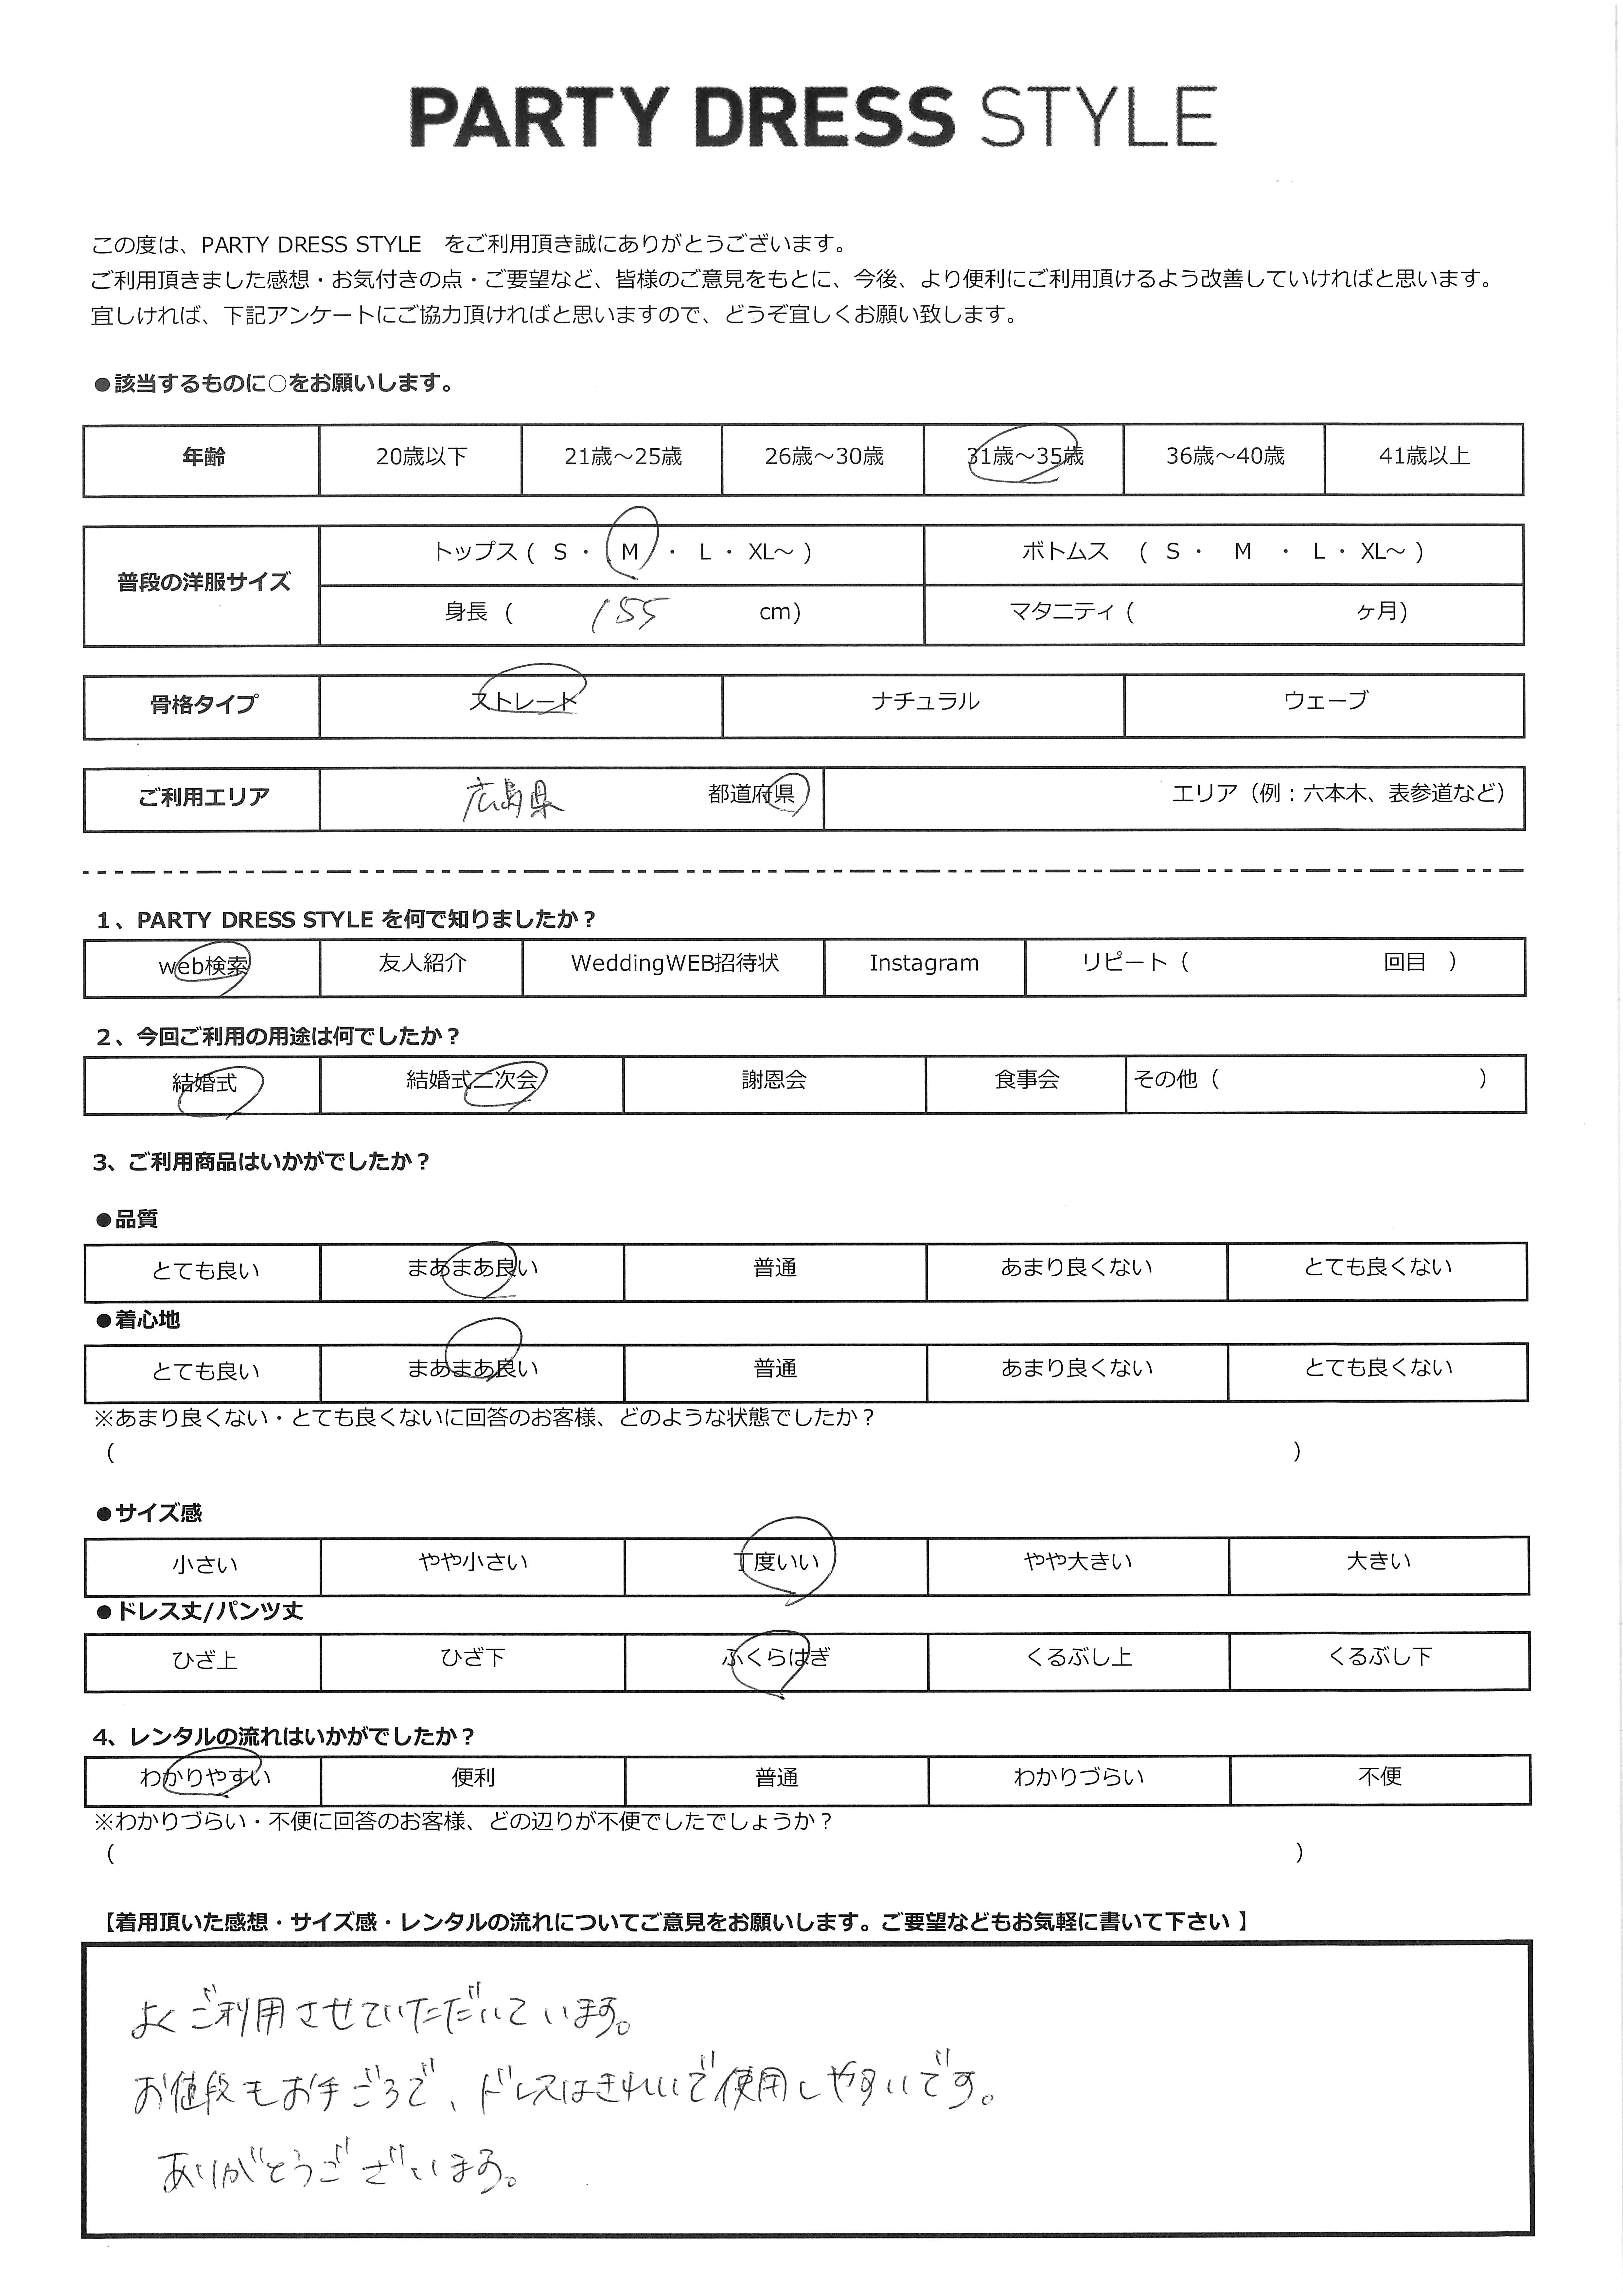 PARTY DRESS STYLE
この度は、PARTY DRESS STYLE　をご利用頂き誠にありがとうございます。
ご利用頂きました感想・お気付きの点・ご要望など、皆様のご意見をもとに、今後、より便利にご利用頂けるよう改善していければと思います。
宜しければ、下記アンケートにご協力頂ければと思いますので、どうぞ宜しくお願い致します。
●該当するものに○をお願いします。
年齢 20歳以下 21歳～25歳 26歳～30歳 31歳～35歳 36歳～40歳 41歳以上
普段の洋服サイズ トップス ( S ・ M ・ L ・ XL～ ) ボトムス ( S ・ M ・ L ・ XL～ )
身長 ( 155 cm) マタニティ ( ヶ月)
骨格タイプ ストレート ナチュラル ウェーブ
ご利用エリア 広島県 都道府県 エリア（例：六本木、表参道など）
1、PARTY DRESS STYLE を何で知りましたか？
web検索 友人紹介 WeddingWEB招待状 Instagram リピート（ 回目 ）
2、今回ご利用の用途は何でしたか？
結婚式 結婚式二次会 謝恩会 食事会 その他（ ）
3、ご利用商品はいかがでしたか？
●品質
とても良い まあまあ良い 普通 あまり良くない とても良くない
●着心地
とても良い まあまあ良い 普通 あまり良くない とても良くない
※あまり良くない・とても良くないに回答のお客様、どのような状態でしたか？
( )
●サイズ感
小さい やや小さい 丁度いい やや大きい 大きい
●ドレス丈/パンツ丈
ひざ上 ひざ下 ふくらはぎ くるぶし上 くるぶし下
4、レンタルの流れはいかがでしたか？
わかりやすい 便利 普通 わかりづらい 不便
※わかりづらい・不便に回答のお客様、どの辺りが不便でしたでしょうか？
( )
【着用頂いた感想・サイズ感・レンタルの流れについてご意見をお願いします。ご要望などもお気軽に書いて下さい 】
よくご利用させていただいています。
お値段もお手ごろで、ドレスはきれいで使用しやすいです。
ありがとうございます。